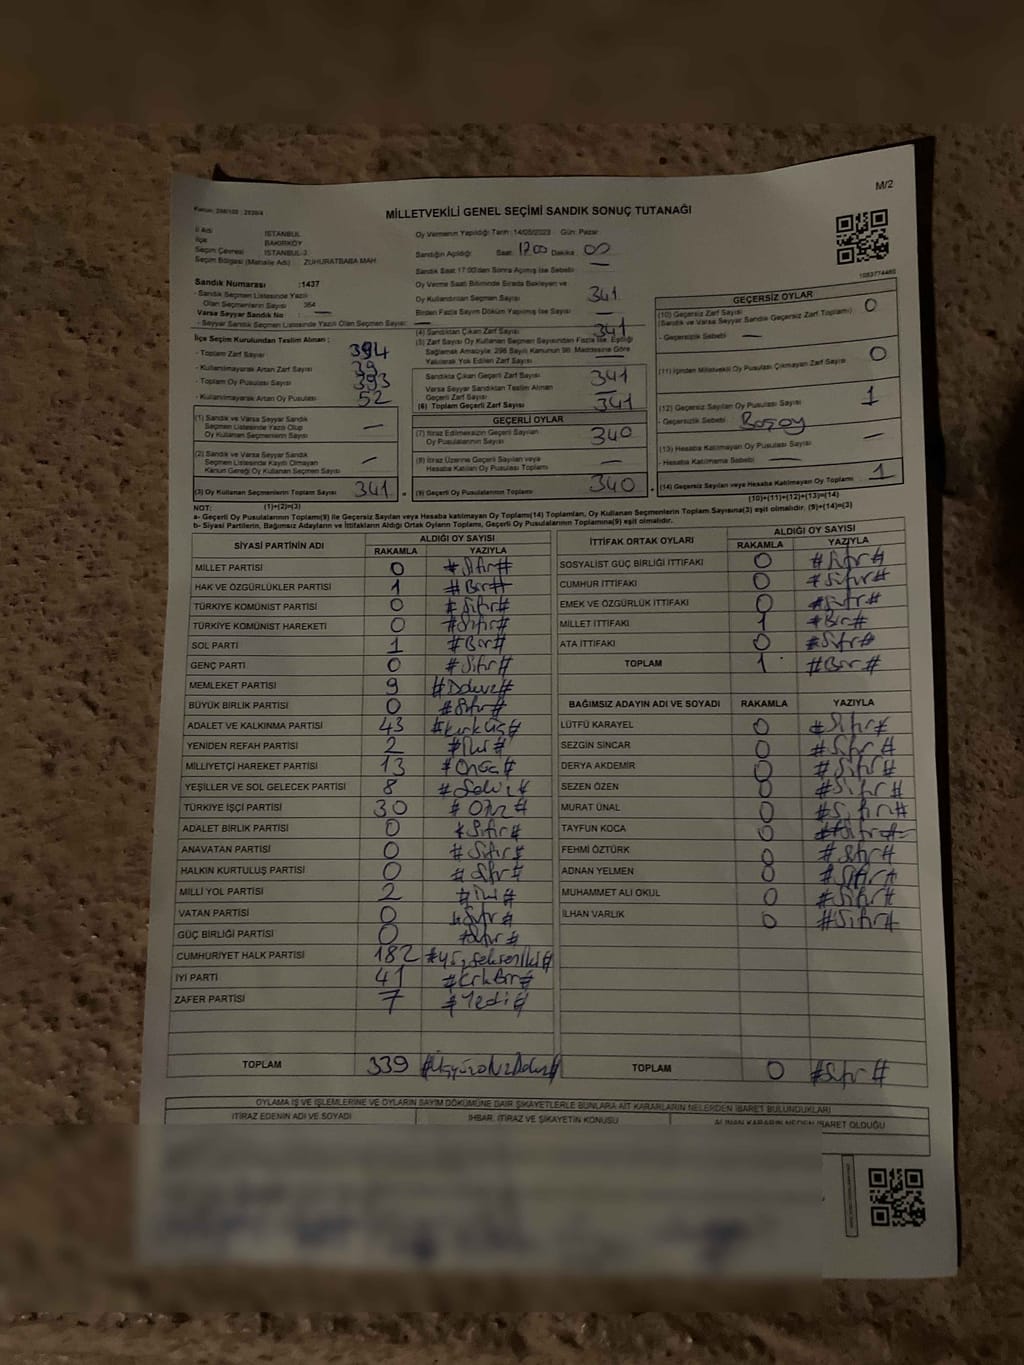 M/2
MİLLETVEKİLİ GENEL SEÇİMİ SANDIK SONUÇ TUTANAĞI
İl Adı İSTANBUL
İlçe BAKIRKÖY
Seçim Çevresi İSTANBUL-3
Seçim Bölgesi (Mahalle Adı) : ZUHURATBABA MAH
Oy Vermenin Yapıldığı Tarih : 14/05/2023 Gün: Pazar
Sandığın Açıldığı Saat: 1700 Dakika 00
Sandık Saat 17:00'den Sonra Açılmış İse Sebebi —
Sandık Numarası :1437
- Sandık Seçmen Listesinde Yazılı
Olan Seçmenlerin Sayısı 364
Varsa Seyyar Sandık No : —
- Seyyar Sandık Seçmen Listesinde Yazılı Olan Seçmen Sayısı: —
İlçe Seçim Kurulundan Teslim Alınan :
- Toplam Zarf Sayısı
- Kullanılmayarak Artan Zarf Sayısı
- Toplam Oy Pusulası Sayısı 393
- Kullanılmayarak Artan Oy Pusulası 52
(1) Sandık ve Varsa Seyyar Sandık
Seçmen Listesinde Yazılı Olup
Oy Kullanan Seçmenlerin Sayısı —
(2) Sandık ve Varsa Seyyar Sandık
Seçmen Listesinde Kayıtlı Olmayan
Kanun Gereği Oy Kullanan Seçmen Sayısı —
(3) Oy Kullanan Seçmenlerin Toplam Sayısı 341
Oy Verme Saati Bitiminde Sırada Bekleyen ve
Oy Kullandırılan Seçmen Sayısı 341
Birden Fazla Sayım Döküm Yapılmış İse Sayısı —
(4) Sandıktan Çıkan Zarf Sayısı 341
(5) Zarf Sayısı Oy Kullanan Seçmen Sayısından Fazla İse, Eşitliği
Sağlamak Amacıyla; 298 Sayılı Kanunun 98. Maddesine Göre
Yakılarak Yok Edilen Zarf Sayısı —
Sandıkta Çıkan Geçerli Zarf Sayısı 341
Varsa Seyyar Sandıktan Teslim Alınan
Geçerli Zarf Sayısı
(6) Toplam Geçerli Zarf Sayısı 341
GEÇERLİ OYLAR
(7) İtiraz Edilmeksizin Geçerli Sayılan
Oy Pusulalarının Sayısı 340
(8) İtiraz Üzerine Geçerli Sayılan veya
Hesaba Katılan Oy Pusulası Toplamı —
(9) Geçerli Oy Pusulalarının Toplamı 340
1083774460
GEÇERSİZ OYLAR
(10) Geçersiz Zarf Sayısı 0
(Sandık ve Varsa Seyyar Sandık Geçersiz Zarf Toplamı)
- Geçersizlik Sebebi —
(11) İçinden Milletvekili Oy Pusulası Çıkmayan Zarf Sayısı 0
(12) Geçersiz Sayılan Oy Pusulası Sayısı 1
- Geçersizlik Sebebi Boş oy
(13) Hesaba Katılmayan Oy Pusulası Sayısı —
- Hesaba Katılmama Sebebi —
(14) Geçersiz Sayılan veya Hesaba Katılmayan Oy Toplamı 1
NOT: (1)+(2)=(3)
(10)+(11)+(12)+(13)=(14)
a- Geçerli Oy Pusulalarının Toplamı(9) ile Geçersiz Sayılan veya Hesaba Katılmayan Oy Toplamı(14) Toplamları, Oy Kullanan Seçmenlerin Toplam Sayısına(3) eşit olmalıdır. (9)+(14)=(3)
b- Siyasi Partilerin, Bağımsız Adayların ve İttifakların Aldığı Ortak Oyların Toplamı, Geçerli Oy Pusulalarının Toplamına(9) eşit olmalıdır.
SİYASİ PARTİNİN ADI ALDIĞI OY SAYISI
RAKAMLA YAZIYLA
MİLLET PARTİSİ 0 #Sıfır#
HAK VE ÖZGÜRLÜKLER PARTİSİ 1 #Bir#
TÜRKİYE KOMÜNİST PARTİSİ 0 #Sıfır#
TÜRKİYE KOMÜNİST HAREKETİ 0 #Sıfır#
SOL PARTİ 1 #Bir#
GENÇ PARTİ 0 #Sıfır#
MEMLEKET PARTİSİ 9 #Dokuz#
BÜYÜK BİRLİK PARTİSİ 0 #Sıfır#
ADALET VE KALKINMA PARTİSİ 43 #Kırk Üç#
YENİDEN REFAH PARTİSİ 2 #İki#
MİLLİYETÇİ HAREKET PARTİSİ 13 #Onüç#
YEŞİLLER VE SOL GELECEK PARTİSİ 8 #Sekiz#
TÜRKİYE İŞÇİ PARTİSİ 30 #Otuz#
ADALET BİRLİK PARTİSİ 0 #Sıfır#
ANAVATAN PARTİSİ 0 #Sıfır#
HALKIN KURTULUŞ PARTİSİ 0 #Sıfır#
MİLLİ YOL PARTİSİ 2 #İki#
VATAN PARTİSİ 0 #Sıfır#
GÜÇ BİRLİĞİ PARTİSİ 0 #Sıfır#
CUMHURİYET HALK PARTİSİ 182 #Yüz Seksen İki#
İYİ PARTİ 41 #Kırk Bir#
ZAFER PARTİSİ 7 #Yedi#
TOPLAM 339 #Üçyüzotuz Dokuz#
İTTİFAK ORTAK OYLARI ALDIĞI OY SAYISI
RAKAMLA YAZIYLA
SOSYALİST GÜÇ BİRLİĞİ İTTİFAKI 0 #Sıfır#
CUMHUR İTTİFAKI 0 #Sıfır#
EMEK VE ÖZGÜRLÜK İTTİFAKI 0 #Sıfır#
MİLLET İTTİFAKI 1 #Bir#
ATA İTTİFAKI 0 #Sıfır#
TOPLAM 1 #Bir#
BAĞIMSIZ ADAYIN ADI VE SOYADI RAKAMLA YAZIYLA
LÜTFÜ KARAYEL 0 #Sıfır#
SEZGİN SİNCAR 0 #Sıfır#
DERYA AKDEMİR 0 #Sıfır#
SEZEN ÖZEN 0 #Sıfır#
MURAT ÜNAL 0 #Sıfır#
TAYFUN KOCA 0 #Sıfır#
FEHMİ ÖZTÜRK 0 #Sıfır#
ADNAN YELMEN 0 #Sıfır#
MUHAMMET ALİ OKUL 0 #Sıfır#
İLHAN VARLIK 0 #Sıfır#
TOPLAM 0 #Sıfır#
OYLAMA İŞ VE İŞLEMLERİNE VE OYLARIN SAYIM DÖKÜMÜNE DAİR ŞİKAYETLERLE BUNLARA AİT KARARLARIN NELERDEN İBARET BULUNDUKLARI
İTİRAZ EDENİN ADI VE SOYADI İHBAR, İTİRAZ VE ŞİKAYETİN KONUSU ALINAN KARARIN NEDEN İBARET OLDUĞU